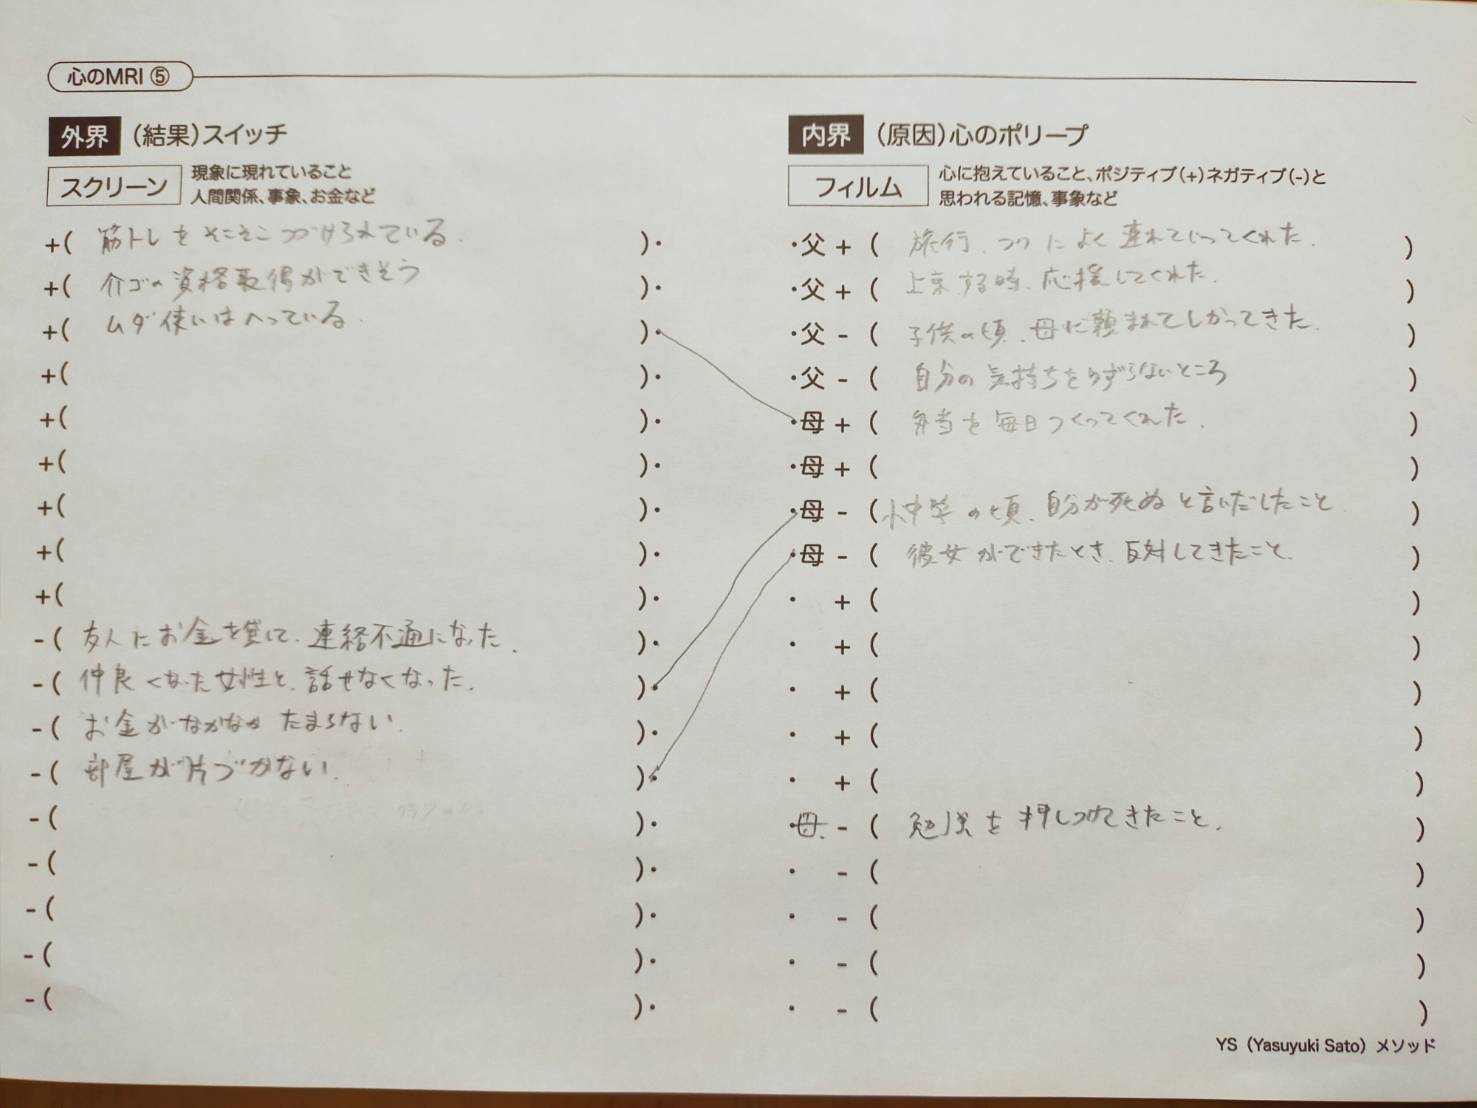 心のMRI ⑤
外界 (結果)スイッチ
スクリーン 現象に現れていること
人間関係、事象、お金など
+( 筋トレをそこそこつづけられている. )・
+( 介ゴの資格取得ができそう )・
+( ムダ使いはへっている. )・
+( )・
+( )・
+( )・
+( )・
+( )・
+( )・
-( 友人にお金を貸して、連絡不通になった. )・
-( 仲良くなった女性と、話せなくなった. )・
-( お金がなかなか たまらない. )・
-( 部屋が片づかない. )・
-( )・
-( )・
-( )・
-( )・
-( )・
内界 (原因)心のポリープ
フィルム 心に抱えていること、ポジティブ(+)ネガティブ(-)と
思われる記憶、事象など
・父 + ( 旅行、つりによく連れていってくれた. )
・父 + ( 上京する時、応援してくれた. )
・父 - ( 子供の頃、母に頼まれてしかってきた. )
・父 - ( 自分の気持ちをゆずらないところ )
・母 + ( 弁当を毎日つくってくれた. )
・母 + ( )
・母 - ( 小中学の頃、自分が死ぬと言いだしたこと )
・母 - ( 彼女ができたとき、反対してきたこと. )
・ + ( )
・ + ( )
・ + ( )
・ + ( )
・ + ( )
・母 - ( 勉強を押しつけてきたこと. )
・ - ( )
・ - ( )
・ - ( )
・ - ( )
YS (Yasuyuki Sato) メソッド